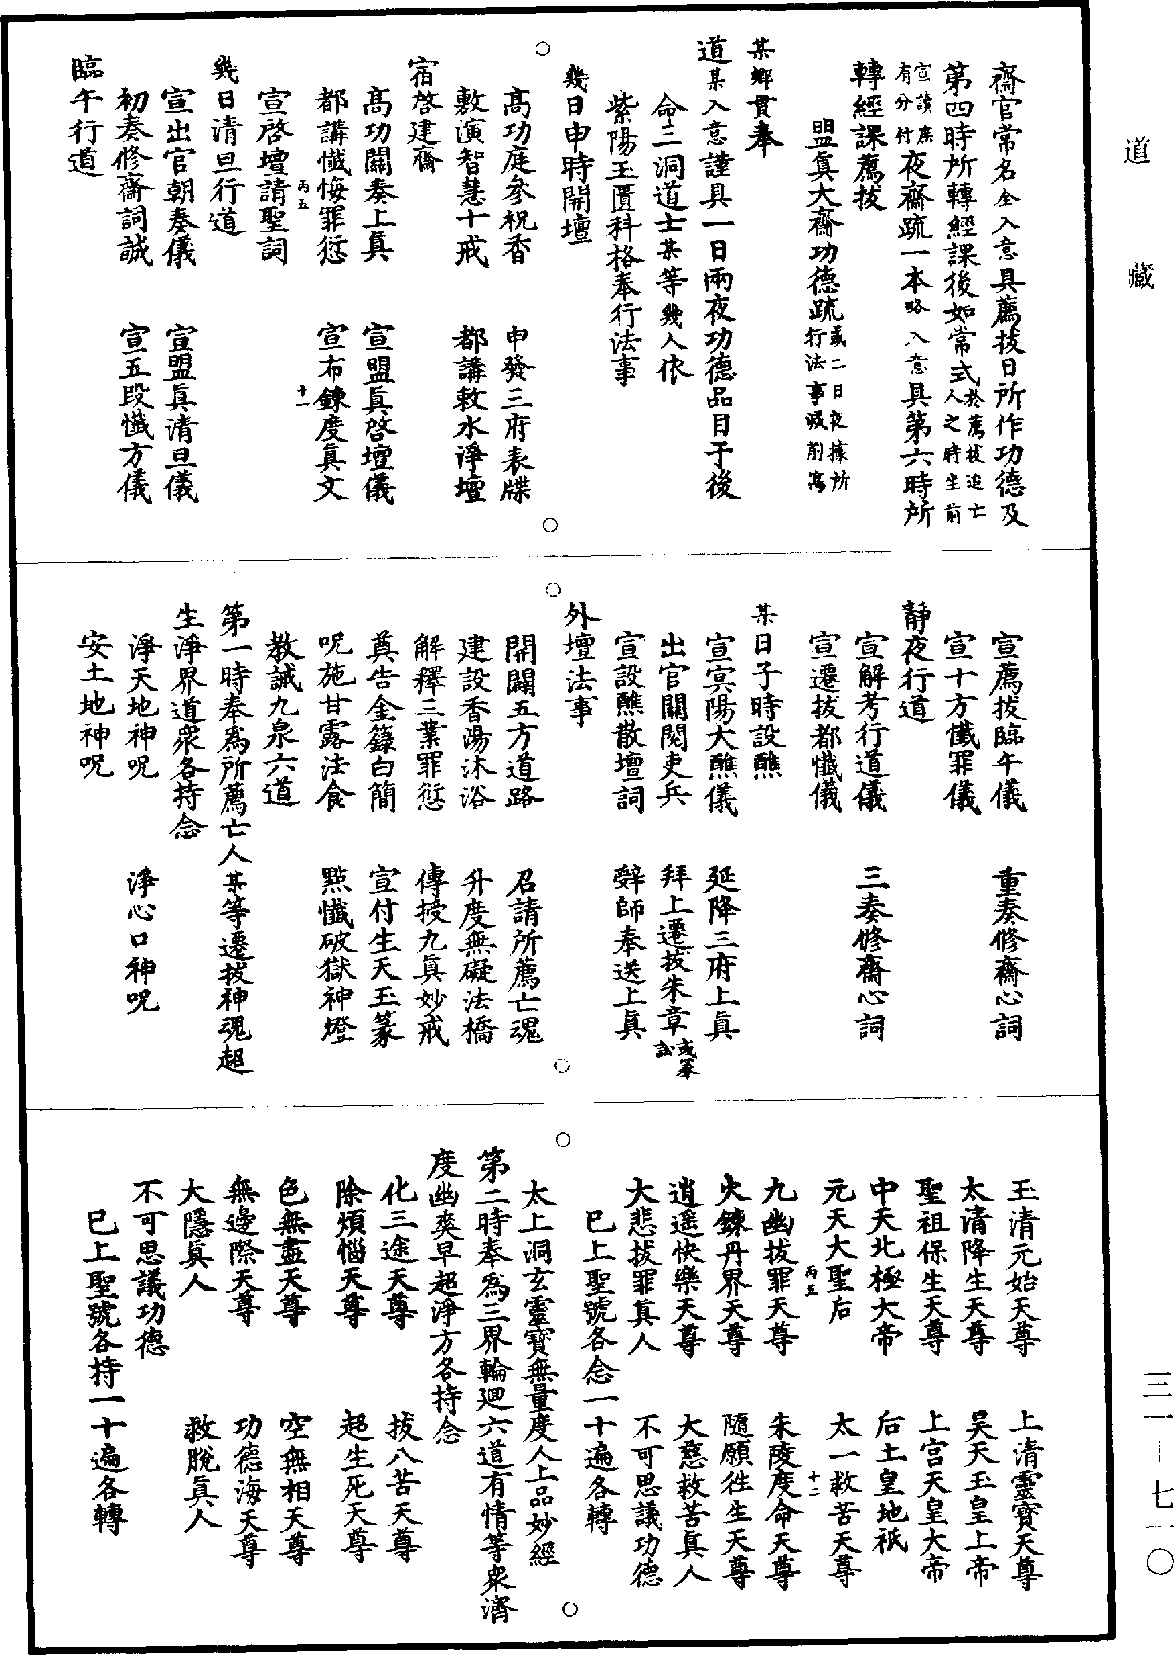 道藏
三一—七一〇
齋官常名全入意具薦拔日所作功德及
第四時所轉經課後如常式於薦拔追亡人之時生前
宣讀庶有分付夜齋疏一本略入意具第六時所
轉經課薦拔
盟真大齋功德疏或二日夜據所行法事吸前寫
某鄉貫奉
道某入意謹具一日兩夜功德品目于後
命三洞道士某等幾人依
紫陽玉匱科格奉行法事
幾日申時開壇
高功庭參祝香　申發三府表牒
敷演智慧十戒　都講敕水淨壇
宿啓建齋
高功關奏上真　宣盟真啓壇儀
都講懺悔罪愆　宣布鍊度真文
丙五　十一
宣啓壇請聖詞
幾日清旦行道
宣出官朝奏儀　宣盟真清旦儀
初奏修齋詞誠　宣五段懺方儀
臨午行道
宣薦拔臨午儀　重奏修齋心詞
宣十方懺罪儀
靜夜行道
宣解考行道儀　三奏修齋心詞
宣遷拔都懺儀
某日子時設醮
宣冥陽大醮儀　延降三府上真
出官關閱吏兵　拜上遷拔朱章或篆
宣設醮散壇詞　辭師奉送上真
外壇法事
開闢五方道路　召請所薦亡魂
建設香湯沐浴　升度無礙法橋
解釋三業罪愆　傳授九真妙戒
奠告金籙白簡　宣付生天玉篆
呪施甘露法食　點懺破獄神燈
教誡九泉六道
第一時奉爲所薦亡人某等遷拔神魂超
生淨界道衆各持念
淨天地神呪　淨心口神呪
安土地神呪
玉清元始天尊　上清靈寶天尊
太清降生天尊　昊天玉皇上帝
聖祖保生天尊　上宮天皇大帝
中天北極大帝　后土皇地祇
元天大聖后　太一救苦天尊
丙五　十二
九幽拔罪天尊　朱陵度命天尊
火鍊丹界天尊　隨願徃生天尊
逍遥快樂天尊　大慈救苦真人
大悲拔罪真人　不可思議功德
已上聖號各念一十遍各轉
太上洞玄靈寶無量度人上品妙經
第二時奉爲三界輪迴六道有情等衆濟
度幽爽早超淨方各持念
化三途天尊　拔八苦天尊
除煩惱天尊　超生死天尊
色無盡天尊　空無相天尊
無邊際天尊　功德海天尊
大隱真人　救脫真人
不可思議功德
已上聖號各持一十遍各轉